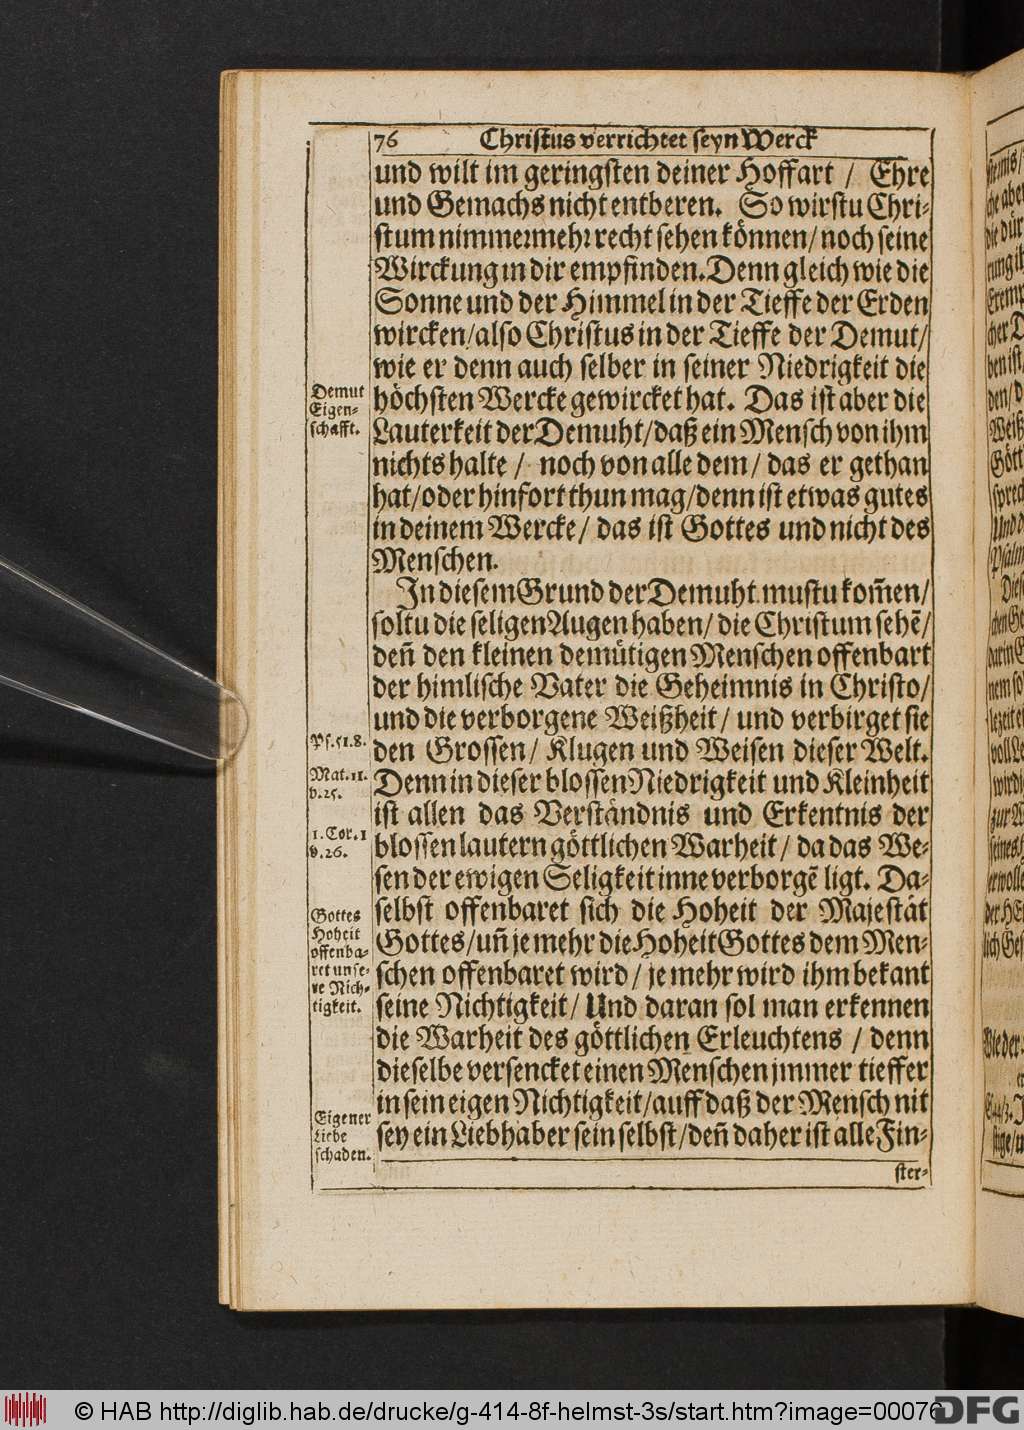 76 Christus verrichtet seyn Werck
und wilt im geringsten deiner Hoffart / Ehre
und Gemachs nicht entberen. So wirstu Chri-
stum nimmermehr recht sehen können/ noch seine
Wirckung in dir empfinden. Denn gleich wie die
Sonne und der Himmel in der Tieffe der Erden
wircken/ also Christus in der Tieffe der Demut/
wie er denn auch selber in seiner Niedrigkeit die
höchsten Wercke gewircket hat. Das ist aber die
Lauterkeit der Demuht/ daß ein Mensch von ihm
nichts halte / noch von alle dem / das er gethan
hat/ oder hinfort thun mag/ denn ist etwas gutes
in deinem Wercke/ das ist Gottes und nicht des
Menschen.
In diesem Grund der Demuht mustu kom̃en/
soltu die seligen Augen haben/ die Christum sehẽ/
den̄ den kleinen demütigen Menschen offenbart
der himlische Vater die Geheimnis in Christo/
und die verborgene Weißheit/ und verbirget sie
den Grossen/ Klugen und Weisen dieser Welt.
Denn in dieser blossen Niedrigkeit und Kleinheit
ist allen das Verständnis und Erkentnis der
blossen lautern göttlichen Warheit/ da das We-
sen der ewigen Seligkeit inne verborgẽ ligt. Da-
selbst offenbaret sich die Hoheit der Majestät
Gottes/ un̄ je mehr die Hoheit Gottes dem Men-
schen offenbaret wird/ je mehr wird ihm bekant
seine Nichtigkeit/ Und daran sol man erkennen
die Warheit des göttlichen Erleuchtens / denn
dieselbe versencket einen Menschen jmmer tieffer
in sein eigen Nichtigkeit/ auff daß der Mensch nit
sey ein Liebhaber sein selbst/ den̄ daher ist alle Fin-
ster-
Demut
Eigen-
schafft.
Ps. 51. 8.
Mat. 11.
v. 25.
1. Cor. 1
v. 26.
Gottes
Hoheit
offenba-
ret unse-
re Nich-
tigkeit.
Eigener
Liebe
schaden.
© HAB http://diglib.hab.de/drucke/g-414-8f-helmst-3s/start.htm?image=00076
DFG